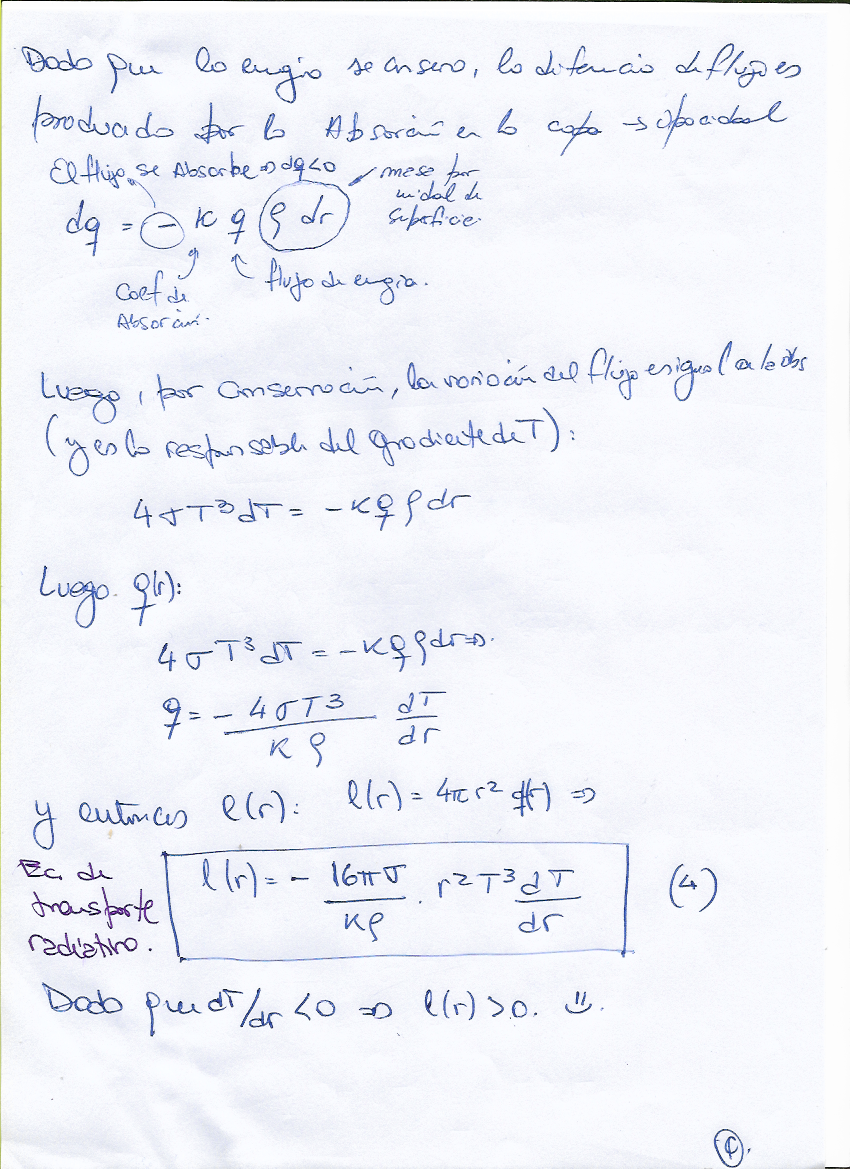 Dado que la energía se conserva, la diferencia de flujo es
producido por la Absorción en la capa → opacidad
El flujo se Absorbe ⇒ dq<0
masa por
unidad de
superficie.
dq = - κ q ρ dr
Coef de
Absorción.
flujo de energía.
Luego, por conservación, la variación del flujo es igual a la abs
(y es la responsable del gradiente de T):
4σT³dT = -κqρdr
Luego q(r):
4σT³dT = -κqρdr ⇒.
q = - 4σT³ / κρ dT/dr
y entonces l(r): l(r) = 4πr² q(r) ⇒
Ec. de
transporte
radiativo.
l(r) = - 16πσ / κρ · r²T³ dT/dr (4)
Dado que dT/dr <0 ⇒ l(r) >0.